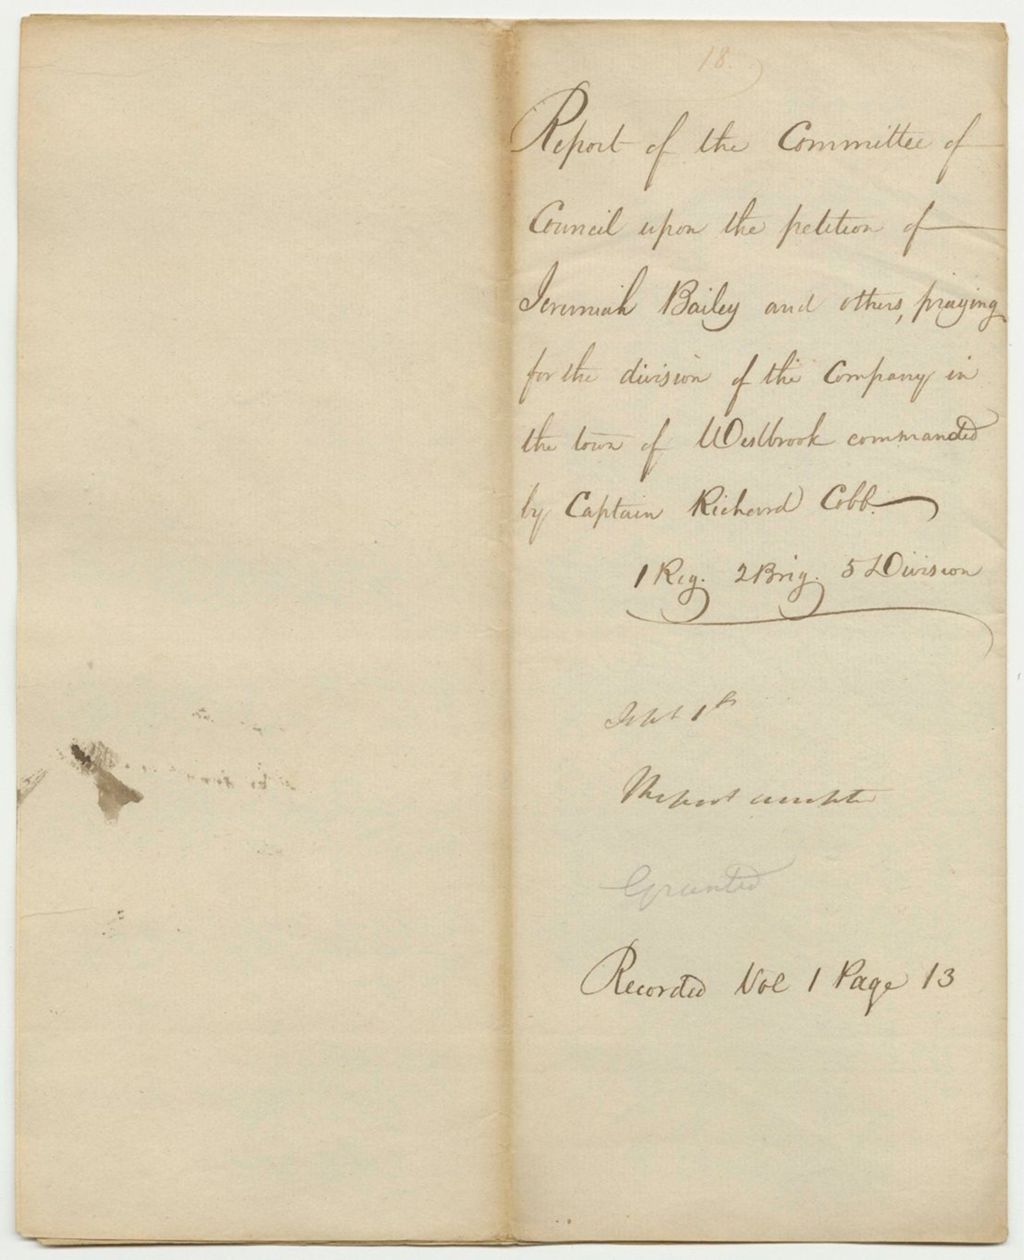 18.
Report of the Committee of
Council upon the petition of
Jeremiah Bailey and others, praying
for the division of the Company in
the town of Westbrook commanded
by Captain Richard Cobb.
1 Reg. 2 Brig. 5 Division
Report accepted
Granted
Recorded Vol 1 Page 13